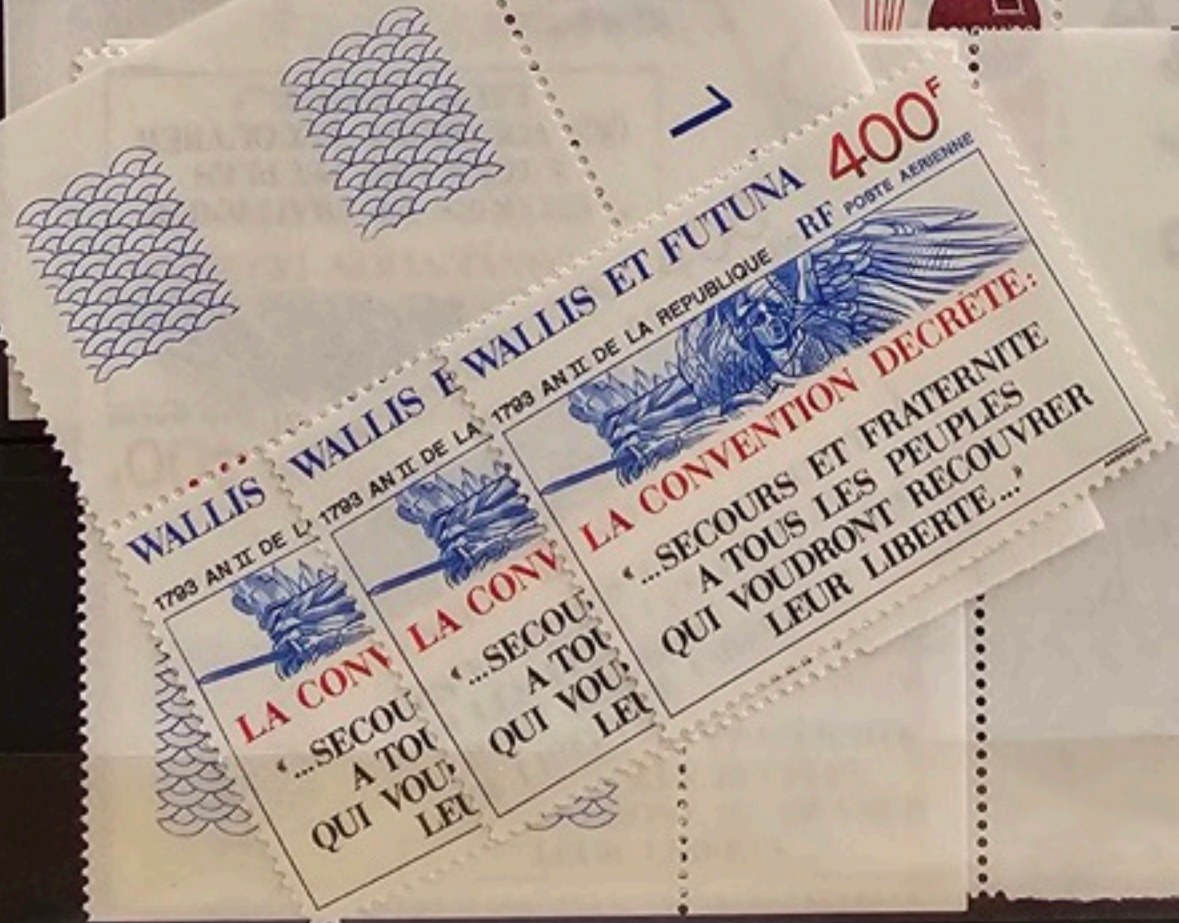 WALLIS ET FUTUNA 400F
1793 AN II DE LA REPUBLIQUE RF POSTE AERIENNE
LA CONVENTION DECRÈTE:
“...SECOURS ET FRATERNITE
A TOUS LES PEUPLES
QUI VOUDRONT RECOUVRER
LEUR LIBERTE...”
WALLIS E
1793 AN II DE LA
LA CONV
“...SECOU
A TOU
QUI VOU
LEU
WALLIS
1793 AN II DE L
LA CONV
“...SECOU
A TOU
QUI VOU
LEU